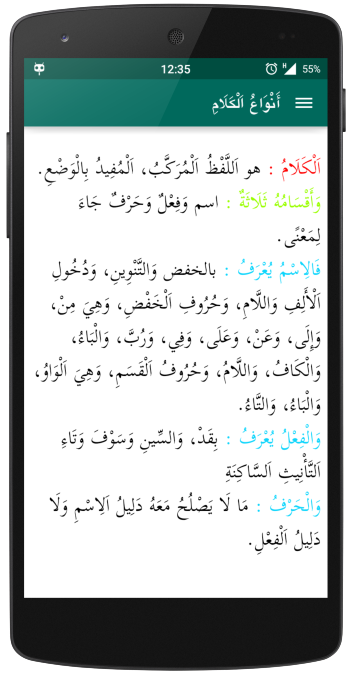 12:35
H
55%
أَنْوَاعُ اَلْكَلَامِ
اَلْكَلَامُ : هو اَللَّفْظُ اَلْمُرَكَّبُ، اَلْمُفِيدُ بِالْوَضْعِ.
وَأَقْسَامُهُ ثَلَاثَةٌ : اسم وَفِعْلٌ وَحَرْفٌ جَاءَ
لِمَعْنًى.
فَالِاسْمُ يُعْرَفُ : بالخفض وَالتَّنْوِينِ، وَدُخُولِ
اَلْأَلِفِ وَاللَّامِ، وَحُرُوفِ اَلْخَفْضِ، وَهِيَ مِنْ،
وَإِلَى، وَعَنْ، وَعَلَى، وَفِي، وَرُبَّ، وَالْبَاءُ،
وَالْكَافُ، وَاللَّامُ، وَحُرُوفُ اَلْقَسَمِ، وَهِيَ اَلْوَاوُ،
وَالْبَاءُ، وَالتَّاءُ.
وَالْفِعْلُ يُعْرَفُ : بِقَدْ، وَالسِّينِ وَسَوْفَ وَتَاءِ
اَلتَّأْنِيثِ اَلسَّاكِنَةِ
وَالْحَرْفُ : مَا لَا يَصْلُحُ مَعَهُ دَلِيلُ اَلِاسْمِ وَلَا
دَلِيلُ اَلْفِعْلِ.